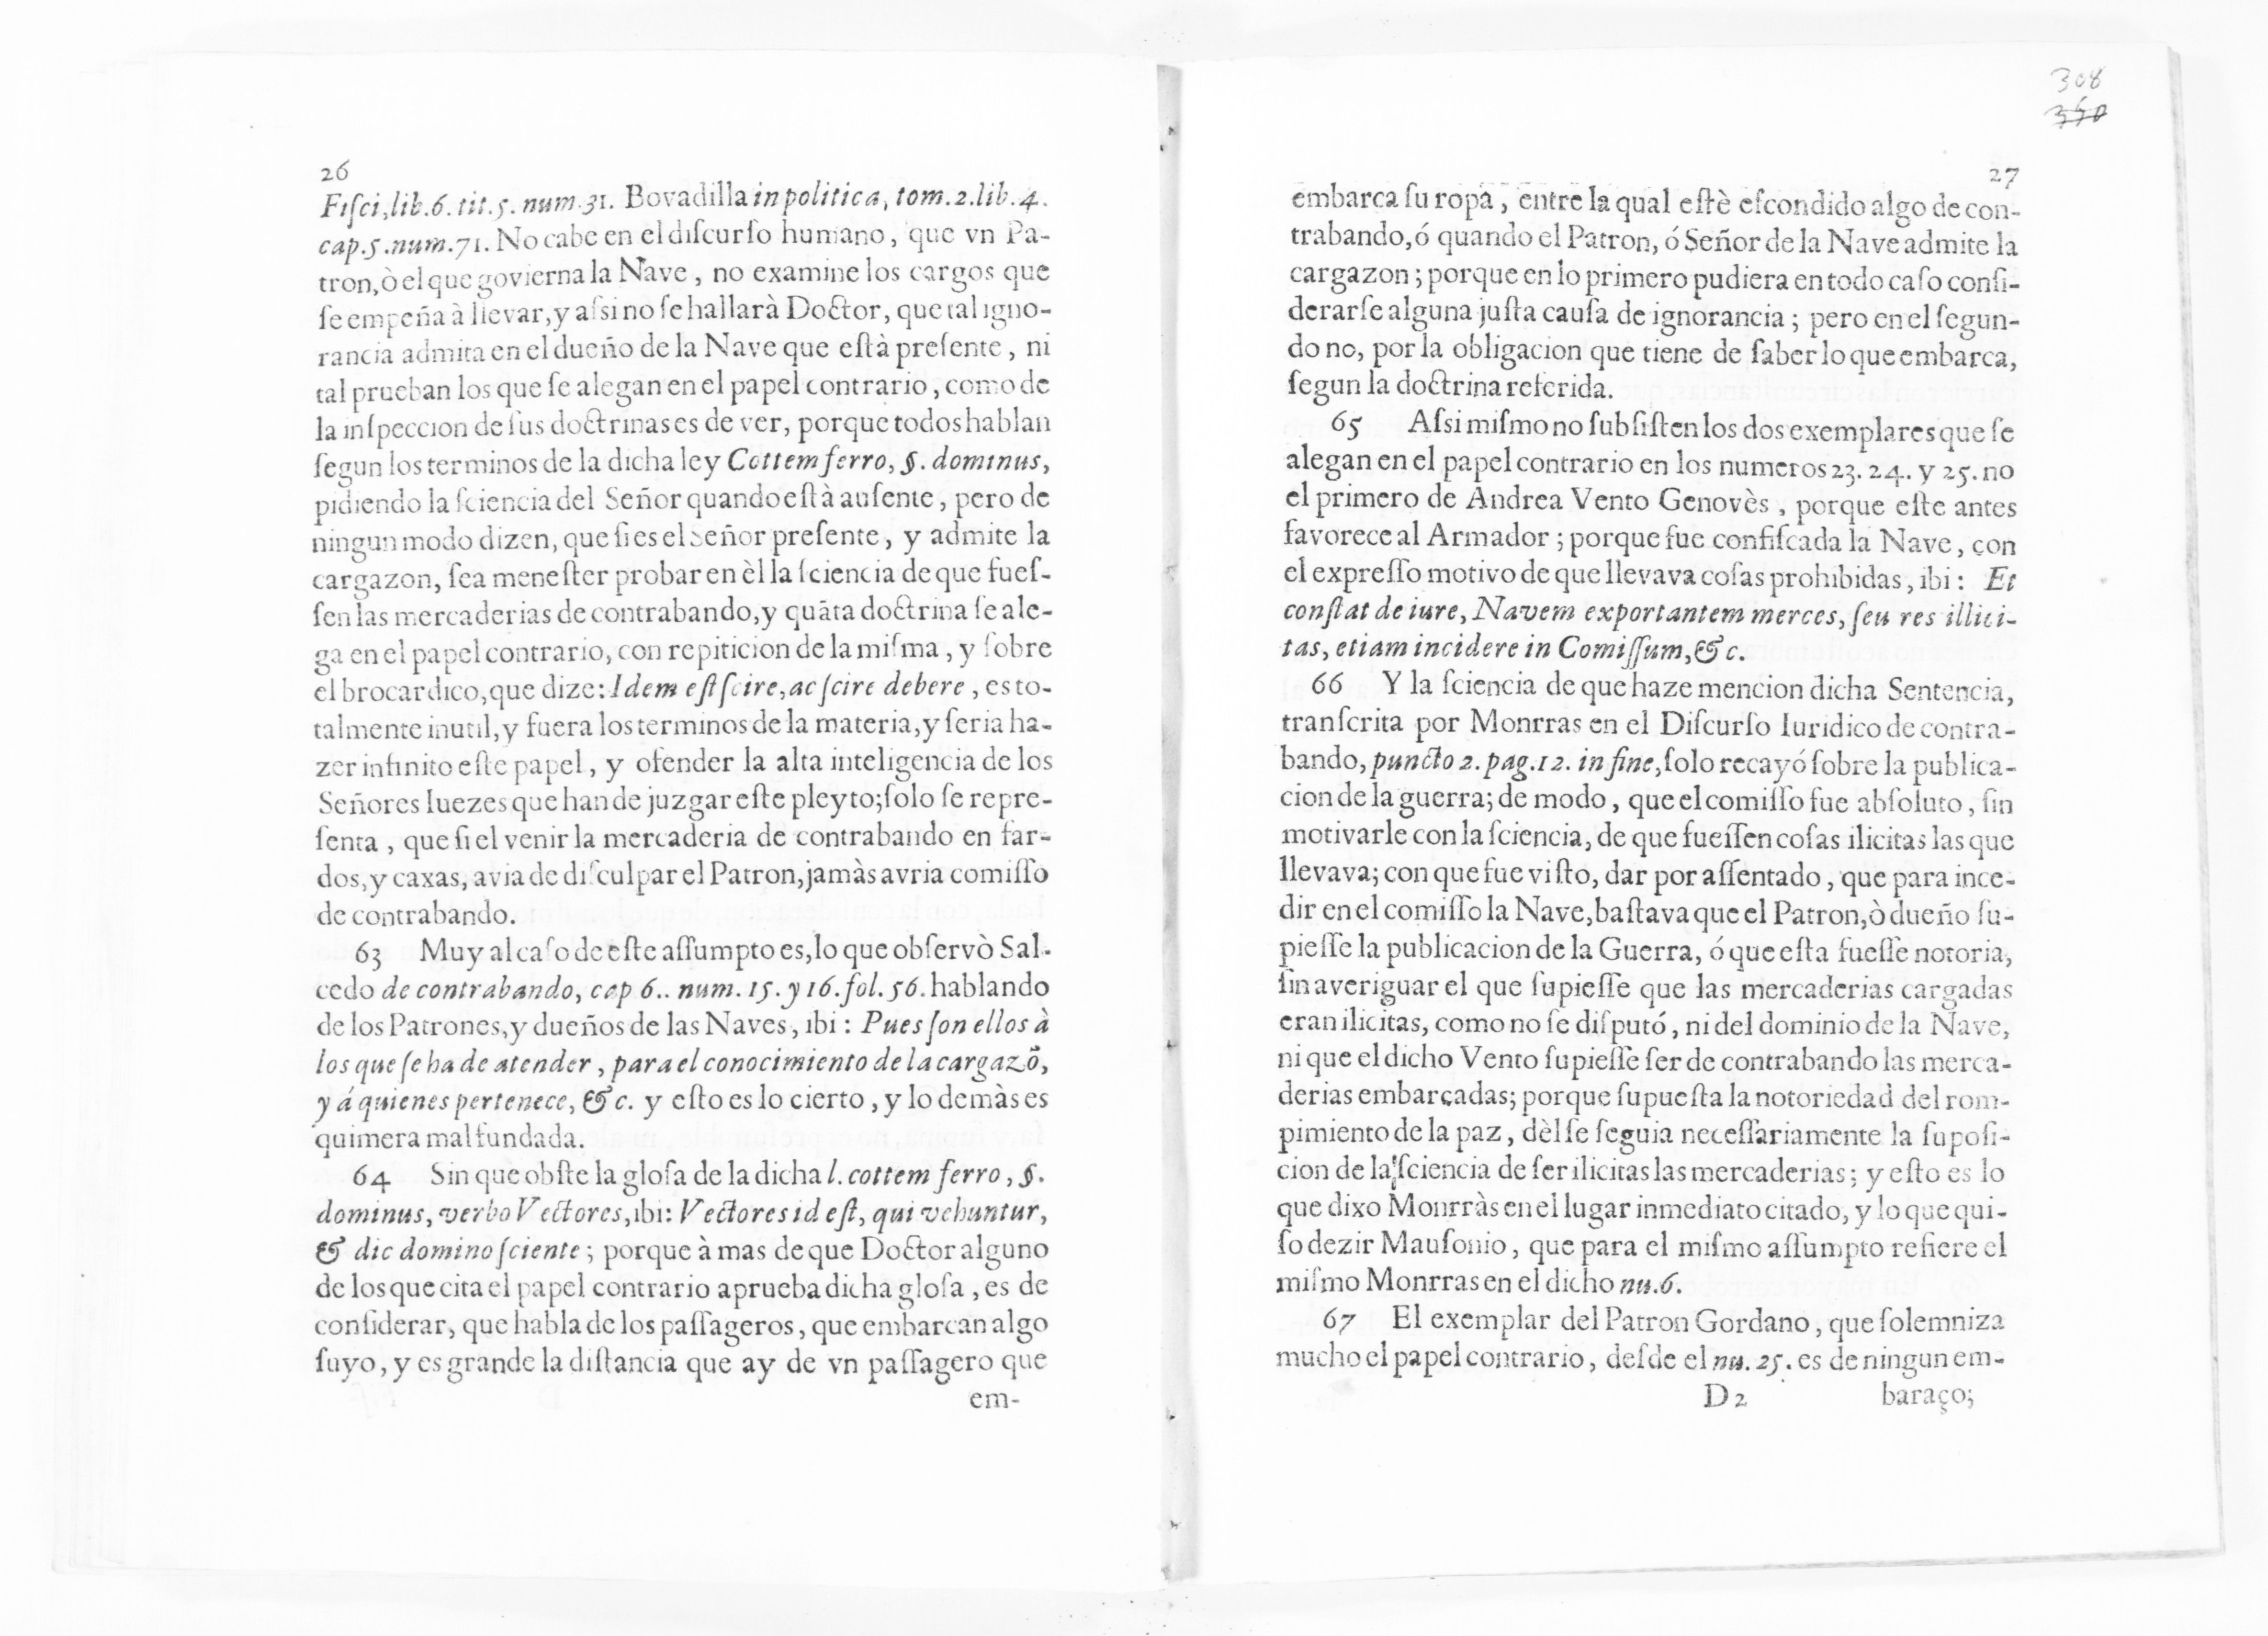 26
Fiſci, lib.6. tit.5. num.31. Bovadilla in politica, tom.2.lib.4.
cap.5.num.71. No cabe en el diſcurſo humano, que vn Pa-
tron, ò el que govierna la Nave, no examine los cargos que
ſe empeña à llevar, y aſsi no ſe hallarà Doctor, que tal igno-
rancia admita en el dueño de la Nave que eſtà preſente, ni
tal prueban los que ſe alegan en el papel contrario, como de
la inſpeccion de ſus doctrinas es de ver, porque todos hablan
ſegun los terminos de la dicha ley Cottem ferro, §. dominus,
pidiendo la ſciencia del Señor quando eſtà auſente, pero de
ningun modo dizen, que ſi es el Señor preſente, y admite la
cargazon, ſea meneſter probar en èl la ſciencia de que fueſ-
ſen las mercaderias de contrabando, y quãta doctrina ſe ale-
ga en el papel contrario, con repiticion de la miſma, y ſobre
el brocardico, que dize: Idem eſt ſcire, ac ſcire debere, es to-
talmente inutil, y fuera los terminos de la materia, y ſeria ha-
zer infinito eſte papel, y ofender la alta inteligencia de los
Señores Iuezes que han de juzgar eſte pleyto; ſolo ſe repre-
ſenta, que ſi el venir la mercaderia de contrabando en far-
dos, y caxas, avia de diſculpar el Patron, jamàs avria comiſſo
de contrabando.
63 Muy al caſo de eſte aſſumpto es, lo que obſervò Sal-
cedo de contrabando, cap 6.. num. 15. y 16. fol. 56. hablando
de los Patrones, y dueños de las Naves, ibi: Pues ſon ellos à
los que ſe ha de atender, para el conocimiento de la cargazõ,
y á quienes pertenece, & c. y eſto es lo cierto, y lo demàs es
quimera mal fundada.
64 Sin que obſte la gloſa de la dicha l. cottem ferro, §.
dominus, verbo Vectores, ibi: Vectores id eſt, qui vehuntur,
& dic domino ſciente; porque à mas de que Doctor alguno
de los que cita el papel contrario aprueba dicha gloſa, es de
conſiderar, que habla de los paſſageros, que embarcan algo
ſuyo, y es grande la diſtancia que ay de vn paſſagero que
em-
308
350
27
embarca ſu ropa, entre la qual eſtè eſcondido algo de con-
trabando, ó quando el Patron, ó Señor de la Nave admite la
cargazon; porque en lo primero pudiera en todo caſo conſi-
derarſe alguna juſta cauſa de ignorancia; pero en el ſegun-
do no, por la obligacion que tiene de ſaber lo que embarca,
ſegun la doctrina referida.
65 Aſsi miſmo no ſubſiſten los dos exemplares que ſe
alegan en el papel contrario en los numeros 23. 24. y 25. no
el primero de Andrea Vento Genovès, porque eſte antes
favorece al Armador; porque fue confiſcada la Nave, con
el expreſſo motivo de que llevava coſas prohibidas, ibi: Et
conſtat de iure, Navem exportantem merces, ſeu res illici-
tas, etiam incidere in Comiſſum, & c.
66 Y la ſciencia de que haze mencion dicha Sentencia,
tranſcrita por Monrras en el Diſcurſo Iuridico de contra-
bando, puncto 2. pag.12. in fine, ſolo recayó ſobre la publica-
cion de la guerra; de modo, que el comiſſo fue abſoluto, ſin
motivarle con la ſciencia, de que fueſſen coſas ilicitas las que
llevava; con que fue viſto, dar por aſſentado, que para ince-
dir en el comiſſo la Nave, baſtava que el Patron, ò dueño ſu-
pieſſe la publicacion de la Guerra, ó que eſta fueſſe notoria,
ſin averiguar el que ſupieſſe que las mercaderias cargadas
eran ilicitas, como no ſe diſputó, ni del dominio de la Nave,
ni que el dicho Vento ſupieſſe ſer de contrabando las merca-
derias embarcadas; porque ſupueſta la notoriedad del rom-
pimiento de la paz, dèl ſe ſeguia neceſſariamente la ſupoſi-
cion de la ſciencia de ſer ilicitas las mercaderias; y eſto es lo
que dixo Monrràs en el lugar inmediato citado, y lo que qui-
ſo dezir Mauſonio, que para el miſmo aſſumpto refiere el
miſmo Monrras en el dicho nu.6.
67 El exemplar del Patron Gordano, que ſolemniza
mucho el papel contrario, deſde el nu. 25. es de ningun em-
D2 baraço;